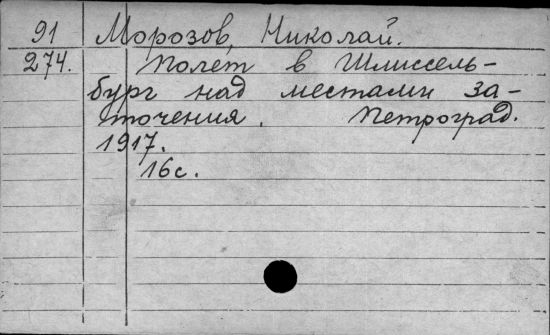 91 Морозов, Николай.
274. Полет в Шлиссель-
бург над местами за-
точения. Петроград.
1917.
16с.